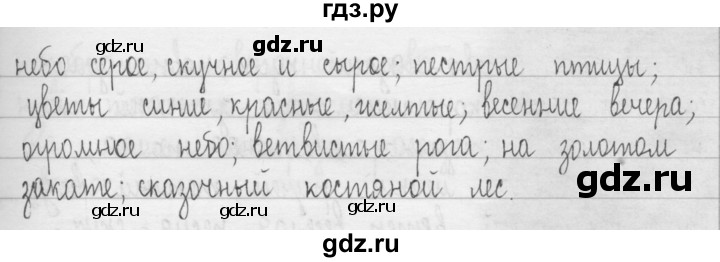 гдз.ру
gdz.ru
небо серое, скучное и сырое; пестрые птицы;
gdz.ru
gdz.ru
цветы синие, красные, желтые; весенние вечера;
огромное небо; ветвистые рога; на золотом
gdz.ru
закате; сказочный костяной лес.
gdz.ru
gdz.ru
gdz.ru